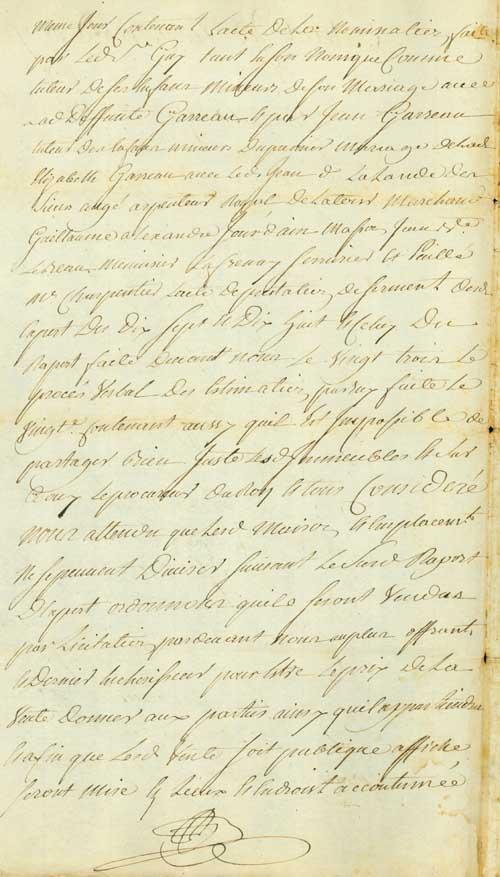 meme jour Contenant Lacte de lad. Nomination faite
par led. Sr. Guy tant
tuteur de ses Enfans Mineurs de son Mariage avec
lad Deffunte Garreau et par Jean Garreau
tuteur des Enfans mineurs du premier mariage de lad.
Elizabeth Garreau avec led. Jean de La Lande des
Sieurs angé arpenteur Raoul Delatour Marchand
Guillaume alexandre Jourdain Masson Jean Bte
Lebeau Menuisier Lafrenay serrurier et Paillé
Me Charpentier Lacte de prestation de serment dexd
Expert Du Dix Sept et Dix huit et Celuy Du
Raport faite devant nous le Vingt trois Le
procés Verbal Des Estimation par eux faite le
Vingte. soutenant aussy quil Est Impossible de
partager Bien Juste lesd Immeubles et Sur
Ce ouy le procureur du Roy et tous Consideré
nous attendu que lesd Maison et Emplacemt
ne se peuvent Diviser suivant le Susd Raport
D'Expert ordonnons quils seront Vendus
par Licitation pardevant nous au plus offrant
et Dernier Encherisseur pour Estre le prix de la
Vente donner aux parties ainsy quil appartiendra
Et afin que lesd Vente soit publique affiche
seront mise Es Lieux et Endroist accoutumée